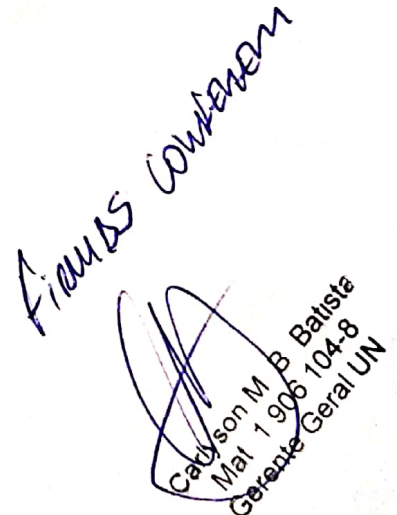 Firmas conferem
Carlyson M B Batista
Mat 1 906 104-8
Gerente Geral UN